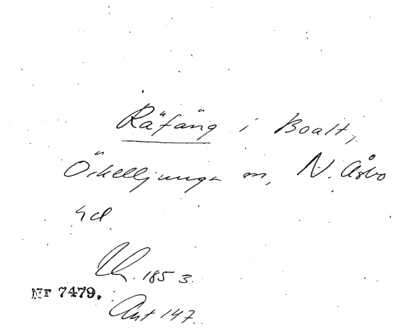 Räfäng i Boalt,
Örkelljunga sn, N. Åsbo
hd.
Lh. 1853.
Nr 7479.
Ant 147.